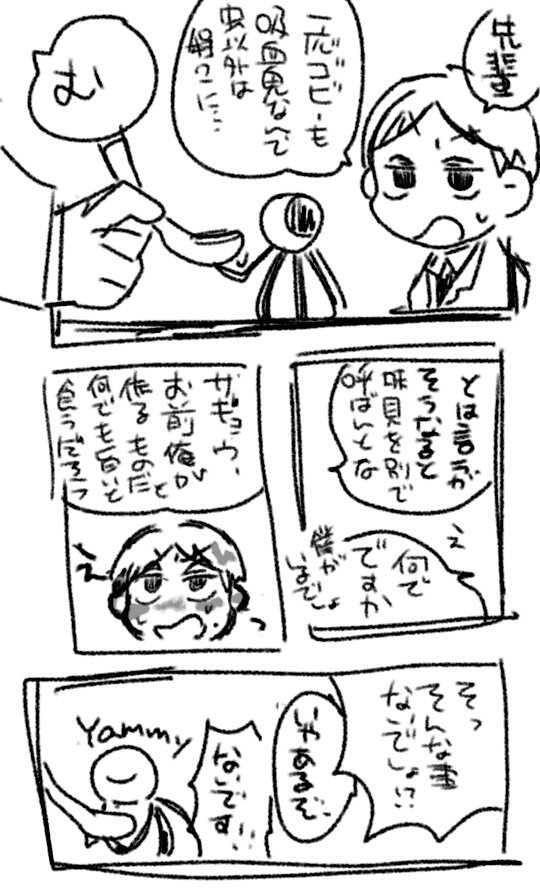 先輩
一応ゴビーも
吸血鬼なんで
虫以外は
む
とは言うが
そうなると
味見を別で
呼ばんとな
え
何で
ですか
僕が
いるでしょ
ザギョウ、
お前俺が
作るものだと
何でも旨いと
食うだろう
え
そっ
そんな事
ないでしょ!?
いやあるぞ
ないです!!
Yammy